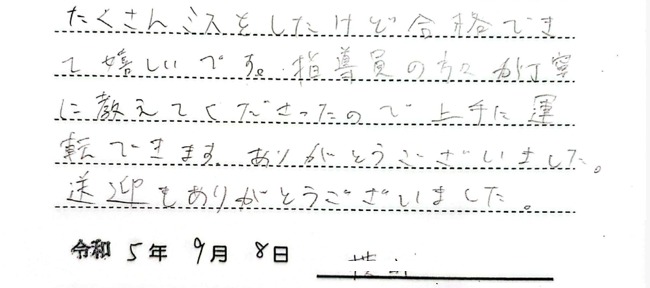 たくさんミスをしたけど合格できま
て嬉しいです。指導員の方々が丁寧
に教えてくださったので上手に運
転できます。ありがとうございました。
送迎もありがとうございました。
令和 5年 9月 8日